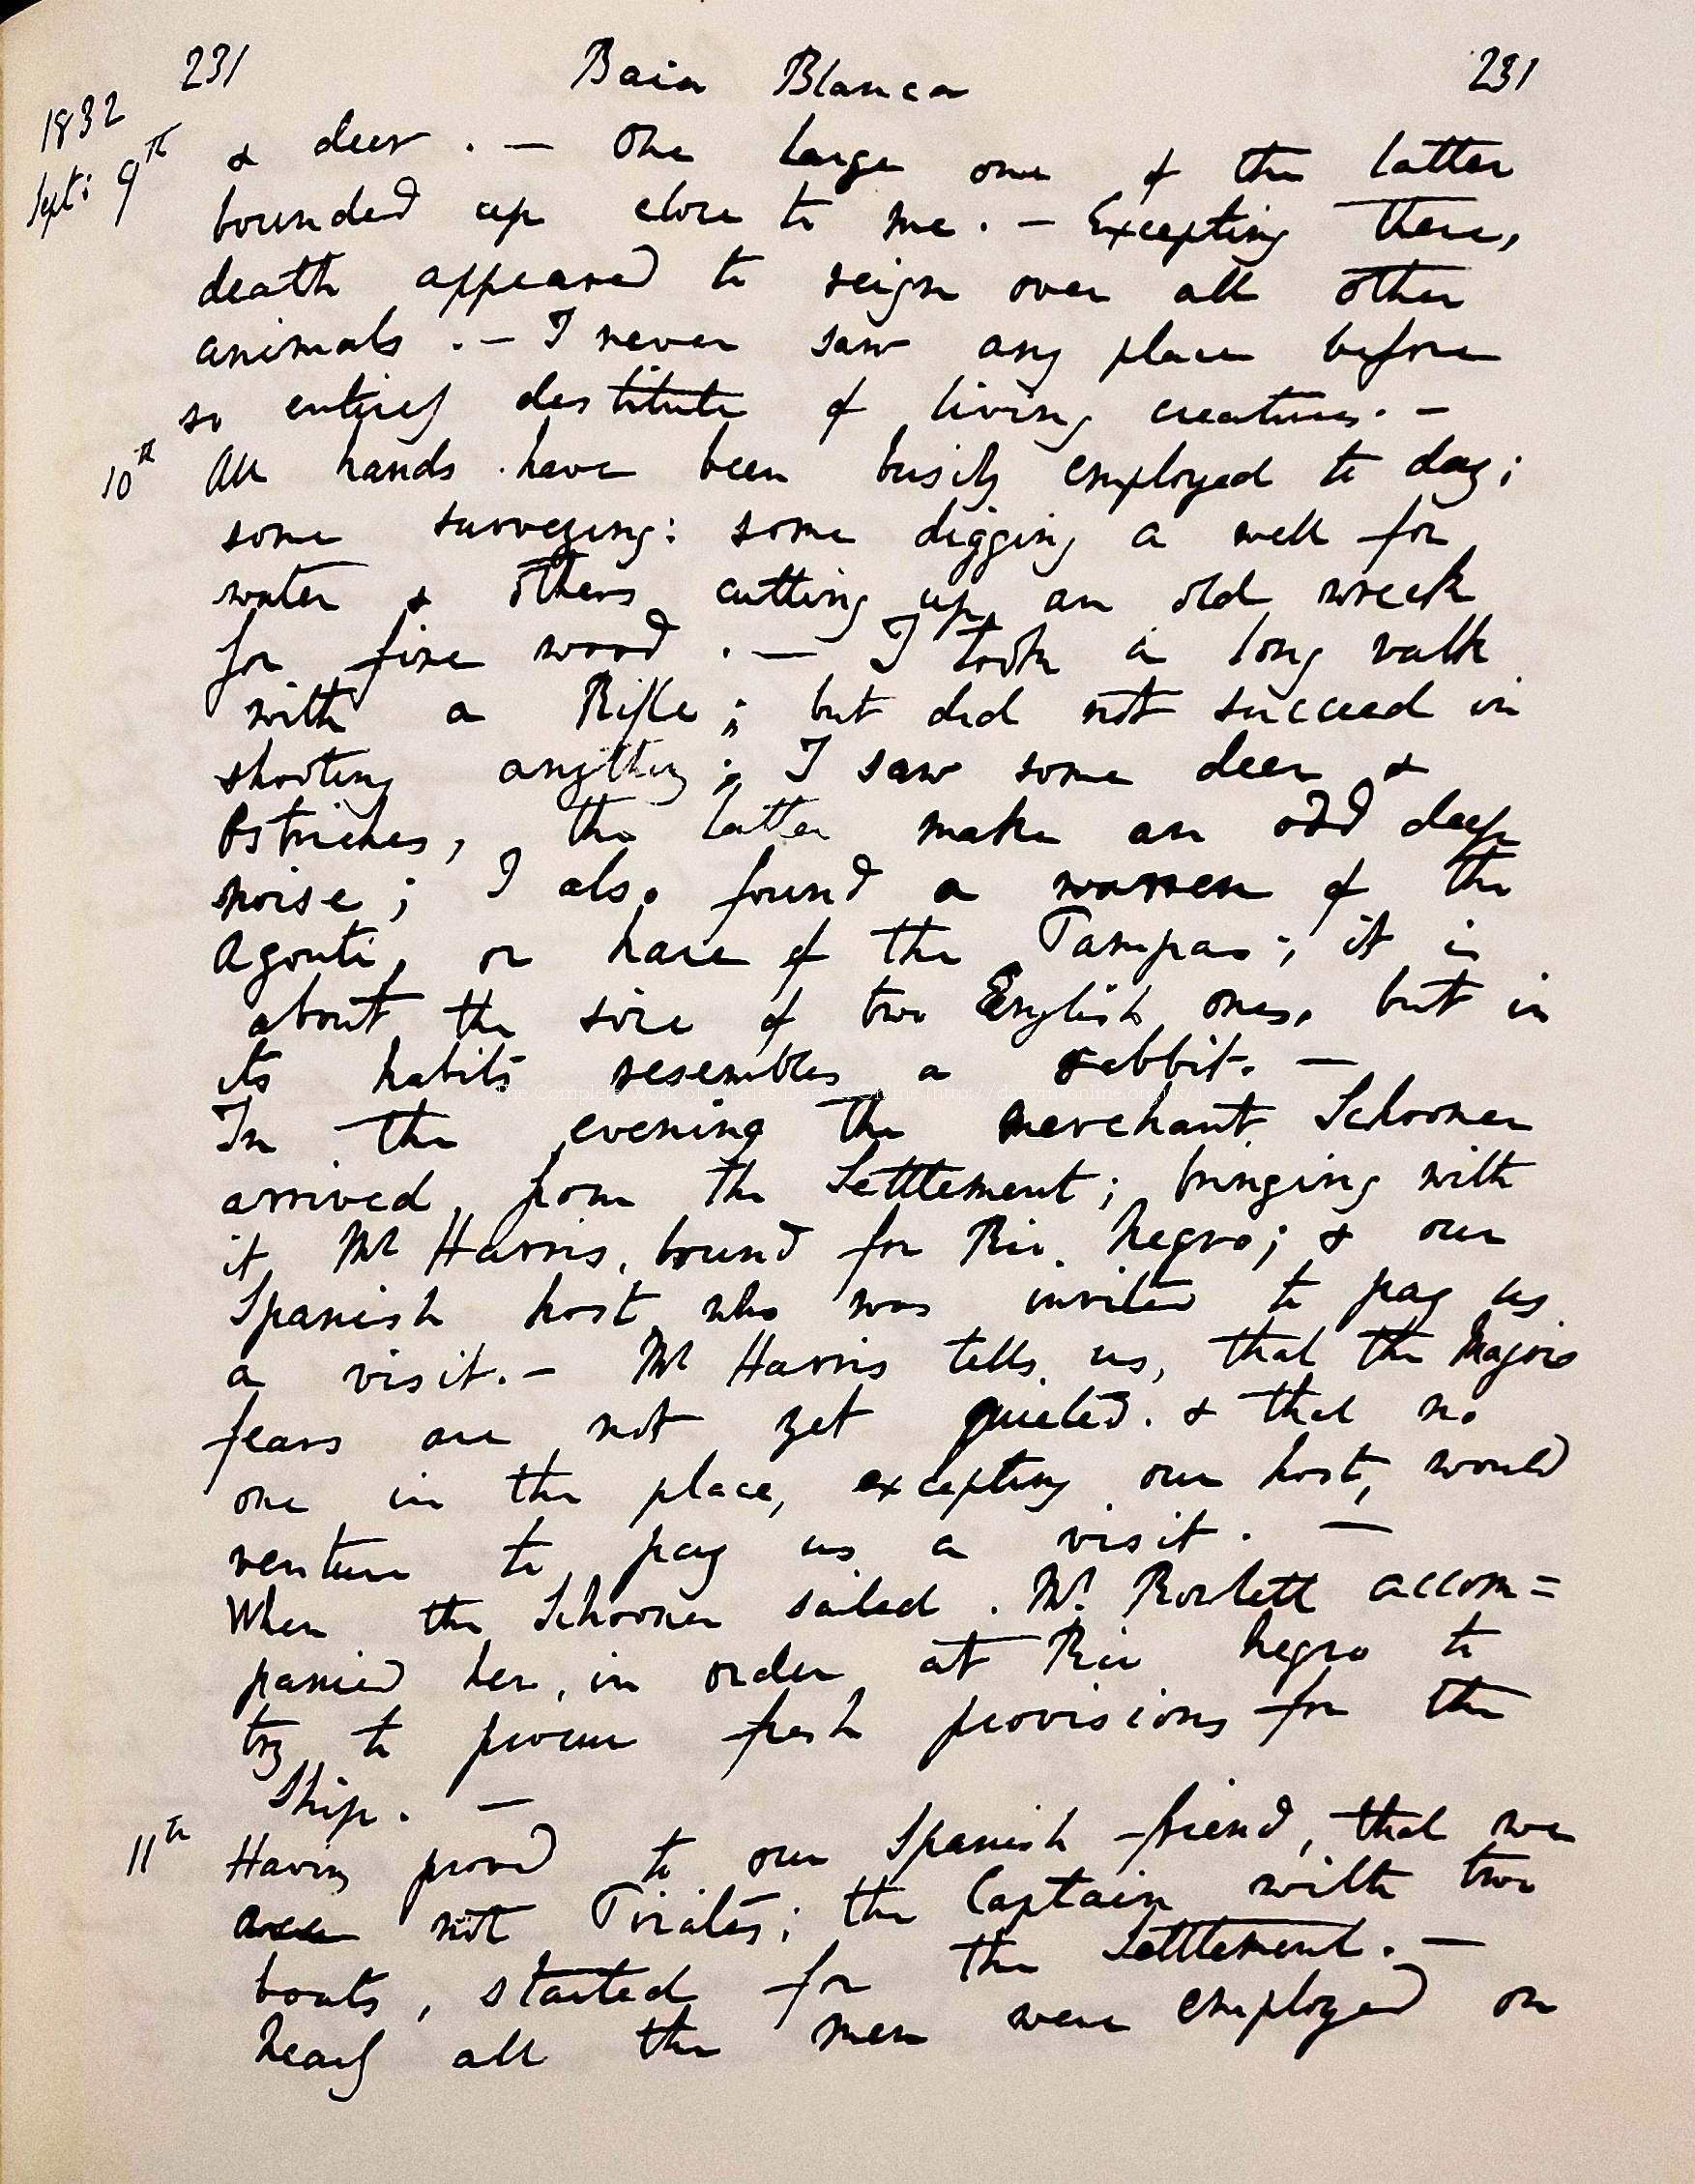 231 Baia Blanca 231
1832
Sept: 9th & deer . — One large one of the latter
bounded up close to me . — Excepting these,
death appeared to reign over all other
animals . — I never saw any place before
so entirely destitute of living creatures . —
10th All hands have been busily employed to day;
some surveying: some digging a well for
water & others cutting up an old wreck
for fire wood . — I took a long walk
with a Rifle; but did not succeed in
shooting anything; I saw some deer &
Ostriches, the latter make an odd deep
noise; I also found a warren of the
Agouti, or hare of the Pampas; it is
about the size of two English ones, but in
its habits resembles a rabbit. —
In the evening the merchant Schooner
arrived from the Settlement; bringing with
it Mr Harris, bound for Rio Negro; & our
Spanish host who was invited to pay us
a visit. — Mr Harris tells us, that the Majors
fears are not yet quieted. & that no
one in the place, excepting our host, would
venture to pay us a visit . —
When the Schooner sailed . Mr. Rowlett accom=
panied her, in order at Rio Negro to
try to procure fresh provisions for the
Ship . —
11th Having proved to our Spanish friend, that we
were not Pirates; the Captain with two
boats, started for the Settlement. —
Nearly all the men were employed on